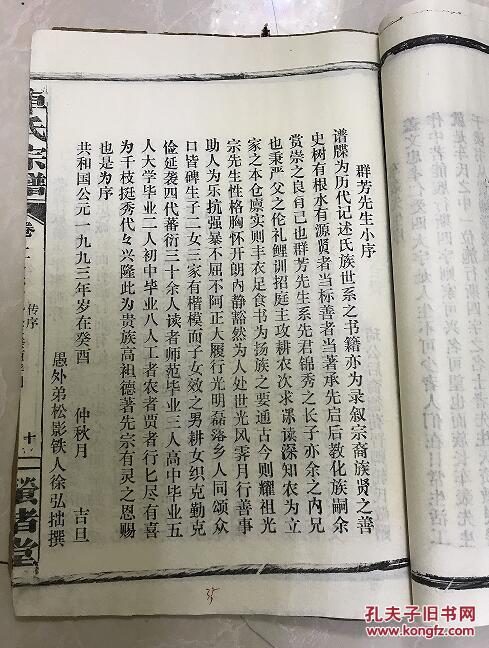 群芳先生小序
谱牒为历代记述氏族世系之书籍亦为录叙宗裔族贤之善
史树有根水有源贤者当标善者当著承先启后教化族嗣余
赏崇之良有己也群芳先生系先君锦秀之长子亦余之内兄
也秉严父之伦礼鲤训招庭主攻耕农次求课读深知农为立
家之本仓廪实则丰衣足食书为扬族之要通古今则耀祖光
宗先生性格胸怀开朗内静豁然为人处世光风霁月行善事
助人为乐抗强暴不屈不阿正大履行光明磊落乡人同颂众
口皆碑生子二女三家有楷模而子女效之男耕女织克勤克
俭延袭四代蕃衍三十余人读者师范毕业三人高中毕业五
人大学毕业二人初中毕业八人工者农者贾者行匕尽有喜
为千枝挺秀代々兴隆此为贵族高祖德著先宗有灵之恩赐
也是为序
共和国公元一九九三年岁在癸酉 仲秋月 吉旦
愚外弟松影铁人徐弘拙撰
氏宗谱
卷
传序
十
堂
35
孔夫子旧书网
kongfz.com